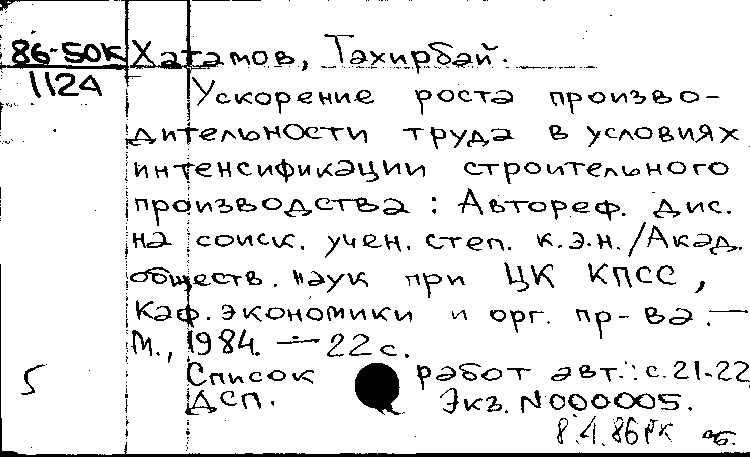 86-50К Хатамов, Тахирбай.
1124 Ускорение роста произво-
дительности труда в условиях
интенсификации строительного
производства : Автореф. дис.
на соиск. учен. степ. к.э.н. / Акад.
обществ. наук при ЦК КПСС,
Каф. экономики и орг. пр-ва. —
М., 1984. — 22 с.
5 Список работ авт.: с. 21-22
ДСП. Экз. N 000005.
8.4.86 РК